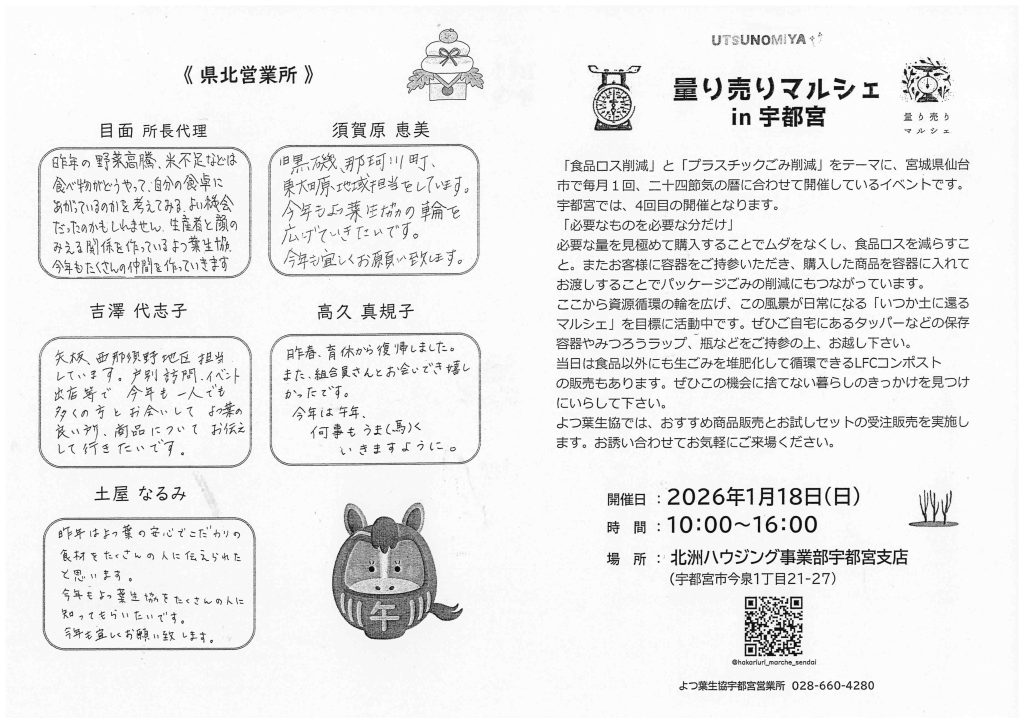 《 県北営業所 》
目面 所長代理
昨年の野菜高騰、米不足などは
食べ物がどうやって、自分の食卓に
あがっているのかを考えてみる、よい機会
だったのかもしれません。生産者と顔の
みえる関係を作っているよつ葉生協、
今年もたくさんの仲間を作っていきます
須賀原 恵美
旧黒磯、那珂川町、
東大田原、地域担当をしています。
今年もよつ葉生協の輪を
広げていきたいです。
今年も宜しくお願い致します。
吉澤 代志子
矢板、西那須野地区担当
しています。戸別訪問、イベント
出店等で 今年も一人でも
多くの方とお会いして よつ葉の
良い所、商品について お伝え
して行きたいです。
高久 真規子
昨春、育休から復帰しました。
また、組合員さんとお会いでき嬉し
かったです。
今年は午年、
何事もうま(馬)く
いきますように。
土屋 なるみ
昨年はよつ葉の安心でこだわりの
食材をたくさんの人に伝えられた
と思います。
今年もよつ葉生協をたくさんの人に
知ってもらいたいです。
今年も宜しくお願い致します。
午
UTSUNOMIYA
量り売りマルシェ
in 宇都宮
量り売り
マルシェ
「食品ロス削減」と「プラスチックごみ削減」をテーマに、宮城県仙台
市で毎月1回、二十四節気の暦に合わせて開催しているイベントです。
宇都宮では、4回目の開催となります。
「必要なものを必要な分だけ」
必要な量を見極めて購入することでムダをなくし、食品ロスを減らすこ
と。またお客様に容器をご持参いただき、購入した商品を容器に入れて
お渡しすることでパッケージごみの削減にもつながっています。
ここから資源循環の輪を広げ、この風景が日常になる「いつか土に還る
マルシェ」を目標に活動中です。ぜひご自宅にあるタッパーなどの保存
容器やみつろうラップ、瓶などをご持参の上、お越し下さい。
当日は食品以外にも生ごみを堆肥化して循環できるLFCコンポスト
の販売もあります。ぜひこの機会に捨てない暮らしのきっかけを見つけ
にいらして下さい。
よつ葉生協では、おすすめ商品販売とお試しセットの受注販売を実施し
ます。お誘い合わせてお気軽にご来場ください。
開催日 ：2026年1月18日(日)
時 間 ：10:00～16:00
場 所 ：北洲ハウジング事業部宇都宮支店
(宇都宮市今泉1丁目21-27)
@hakariuri_marche_sendai
よつ葉生協宇都宮営業所 028-660-4280